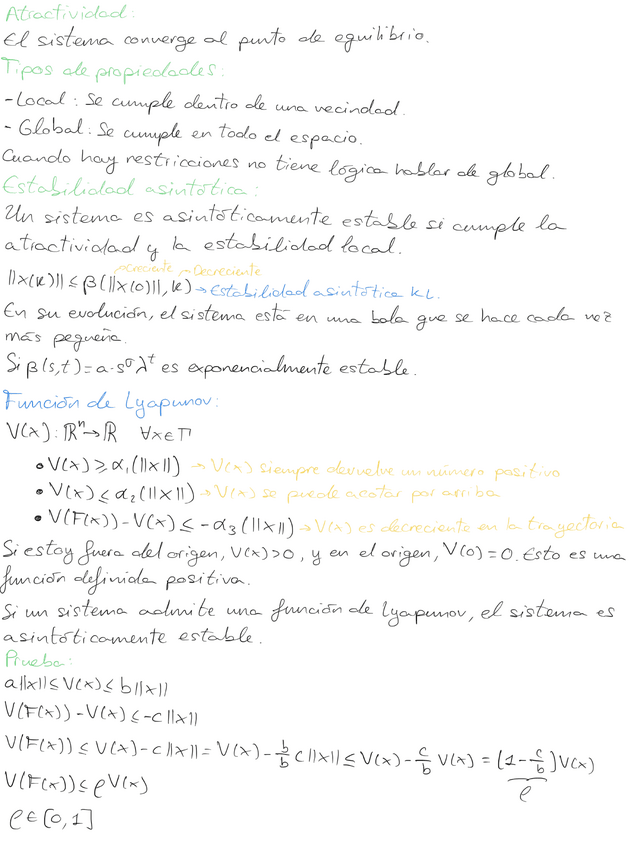 Atractividad:
El sistema converge al punto de equilibrio.
Tipos de propiedades:
- Local: Se cumple dentro de una vecindad.
- Global: Se cumple en todo el espacio.
Cuando hay restricciones no tiene lógica hablar de global.
Estabilidad asintótica:
Un sistema es asintóticamente estable si cumple la
atractividad y la estabilidad local.
↗Creciente ↗Decreciente
||x(k)|| ≤ β(||x(0)||, k) → Estabilidad asintótica KL.
En su evolución, el sistema está en una bola que se hace cada vez
más pequeña.
Si β(s,t) = a·s^σ λ^t es exponencialmente estable.
Función de Lyapunov:
V(x): ℝⁿ → ℝ ∀x∈Π
• V(x) ≥ α₁(||x||) → V(x) siempre devuelve un número positivo
• V(x) ≤ α₂(||x||) → V(x) se puede acotar por arriba
• V(F(x)) - V(x) ≤ -α₃(||x||) → V(x) es decreciente en la trayectoria
Si estoy fuera del origen, V(x)>0, y en el origen, V(0)=0. Esto es una
función definida positiva.
Si un sistema admite una función de Lyapunov, el sistema es
asintóticamente estable.
Prueba:
a||x|| ≤ V(x) ≤ b||x||
V(F(x)) - V(x) ≤ -c||x||
V(F(x)) ≤ V(x) - c||x|| = V(x) - b/b c||x|| ≤ V(x) - c/b V(x) = (1 - c/b)V(x)
ρ
V(F(x)) ≤ ρV(x)
ρ ∈ [0,1]